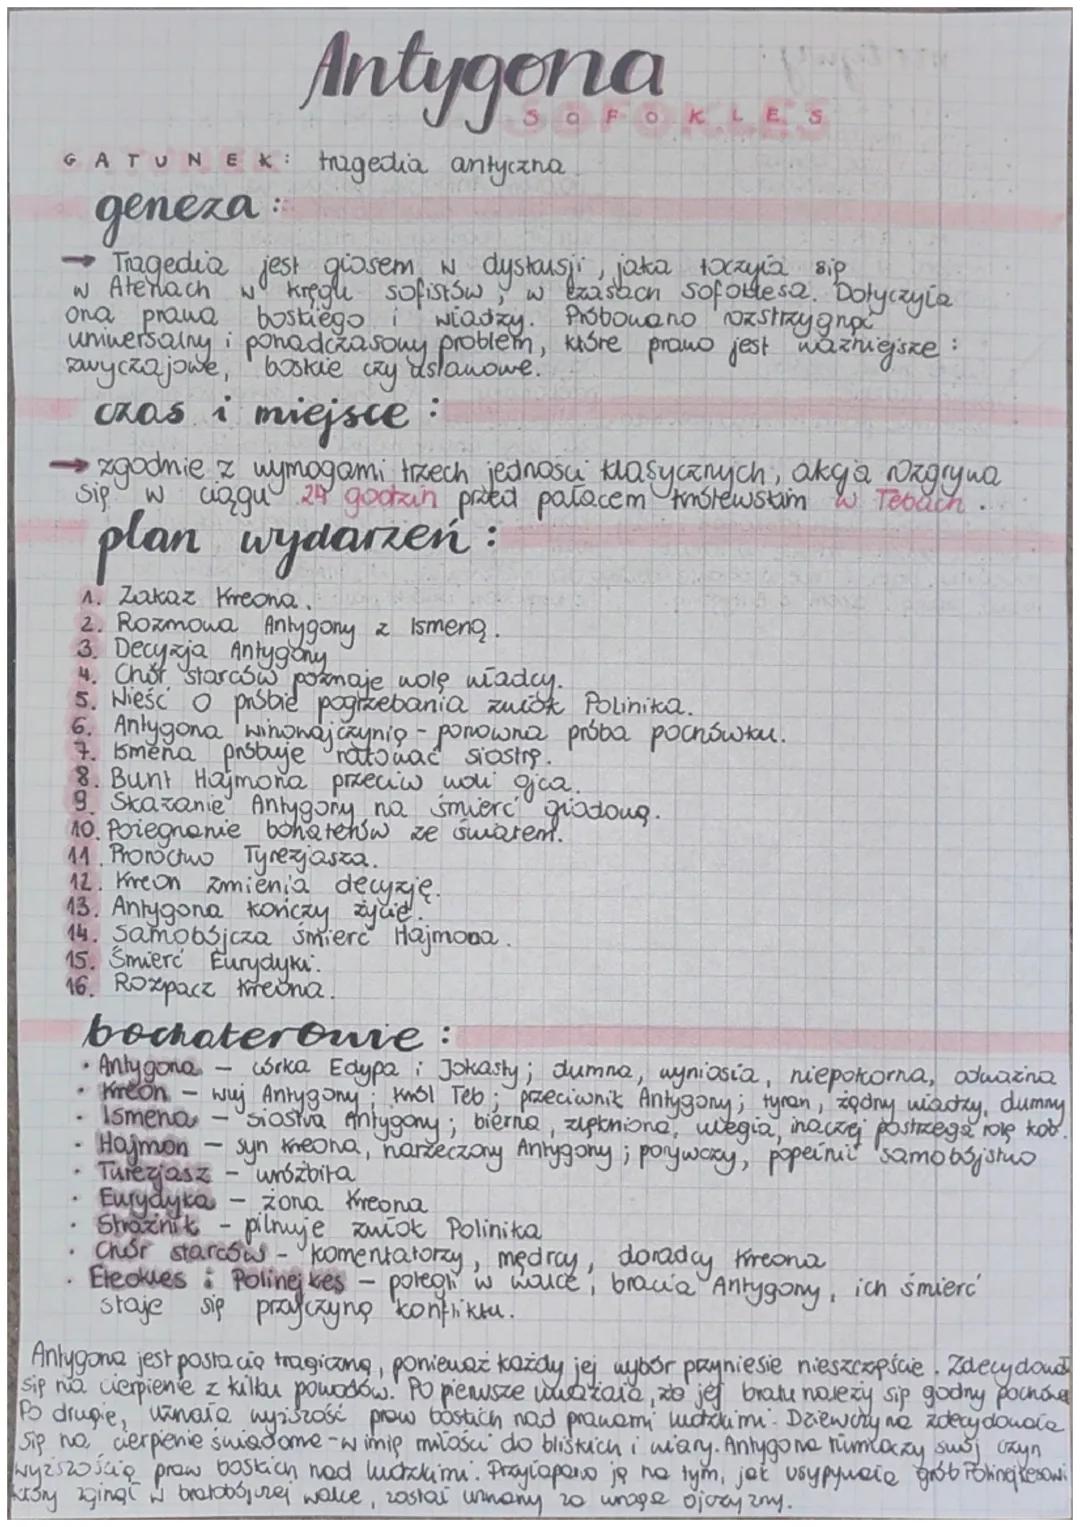 Antygona
SOFOKLES
GATUNEK: tragedia antyczna
geneza:
→ Tragedia jest głosem w dyskusji, jaka toczyła się
w Atenach w kręgu sofistów, w czasach Sofoklesa. Dotyczyła
ona prawa boskiego i władzy. Próbowano rozstrzygnąć
uniwersalny i ponadczasowy problem, które prawo jest ważniejsze:
zwyczajowe, boskie czy ustawowe.
czas i miejsce:
→ zgodnie z wymogami trzech jedności klasycznych, akcja rozgrywa
się w ciągu 24 godzin przed pałacem królewskim w Tebach.
plan wydarzeń:
1. Zakaz Kreona.
2. Rozmowa Antygony z Ismeną.
3. Decyzja Antygony
4. Chór starców poznaje wolę władcy.
5. Wieść o próbie pogrzebania zwłok Polinika.
6. Antygona winowajczynią - ponowna próba pochówku.
7. Ismena próbuje ratować siostrę.
8. Bunt Hajmona przeciw woli ojca.
9. Skazanie Antygony na śmierć głodową.
10. Pożegnanie bohaterów ze światem.
11. Proroctwo Tyrezjasza.
12. Kreon zmienia decyzję.
13. Antygona kończy życie.
14. Samobójcza śmierć Hajmona.
15. Śmierć Eurydyki.
16. Rozpacz Kreona.
bochaterowie:
• Antygona - córka Edypa i Jokasty; dumna, wyniosła, niepokorna, odważna
• Kreon - wuj Antygony; król Teb; przeciwnik Antygony; tyran, żądny władzy, dumny
• Ismena - siostra Antygony; bierna, zlękniona, uległa, inaczej postrzega rolę kob.
• Hajmon - syn Kreona, narzeczony Antygony; porywczy, popełnił samobójstwo
• Turezjasz - wróżbita
• Eurydyka - żona Kreona
• Strażnik - pilnuje zwłok Polinika
• Chór starców - komentatorzy, mędrcy, doradcy Kreona
• Eteokles i Polinejkes - polegli w walce, bracia Antygony, ich śmierć
staje się przyczyną konfliktu.
Antygona jest postacią tragiczną, ponieważ każdy jej wybór przyniesie nieszczęście. Zdecydowała
się na cierpienie z kilku powodów. Po pierwsze uważała, że jej bratu należy się godny pochówek
Po drugie, uznała wyższość praw boskich nad prawami ludzkimi. Dziewczyna zdecydowała
się na cierpienie świadome - w imię miłości do bliskich i wiary. Antygona tłumaczy swój czyn
wyższością praw boskich nad ludzkimi. Przyłapano ją na tym, jak usypywała grób Polinejkesowi
który zginął w bratobójczej walce, został uznany za wroga ojczyzny.